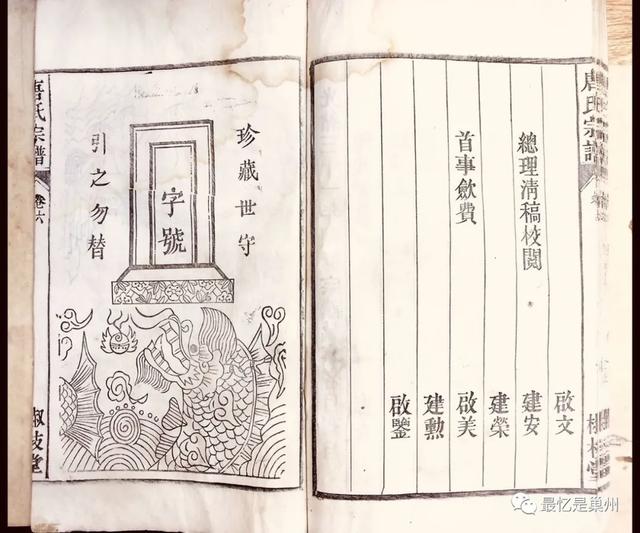 唐氏宗譜
啟文
總理清稿校閱 建安
建榮
首事歛費 啟美
建勲
啟鑒
珍藏世守
字號
引之勿替
唐氏宗譜
卷六
最忆是巢州